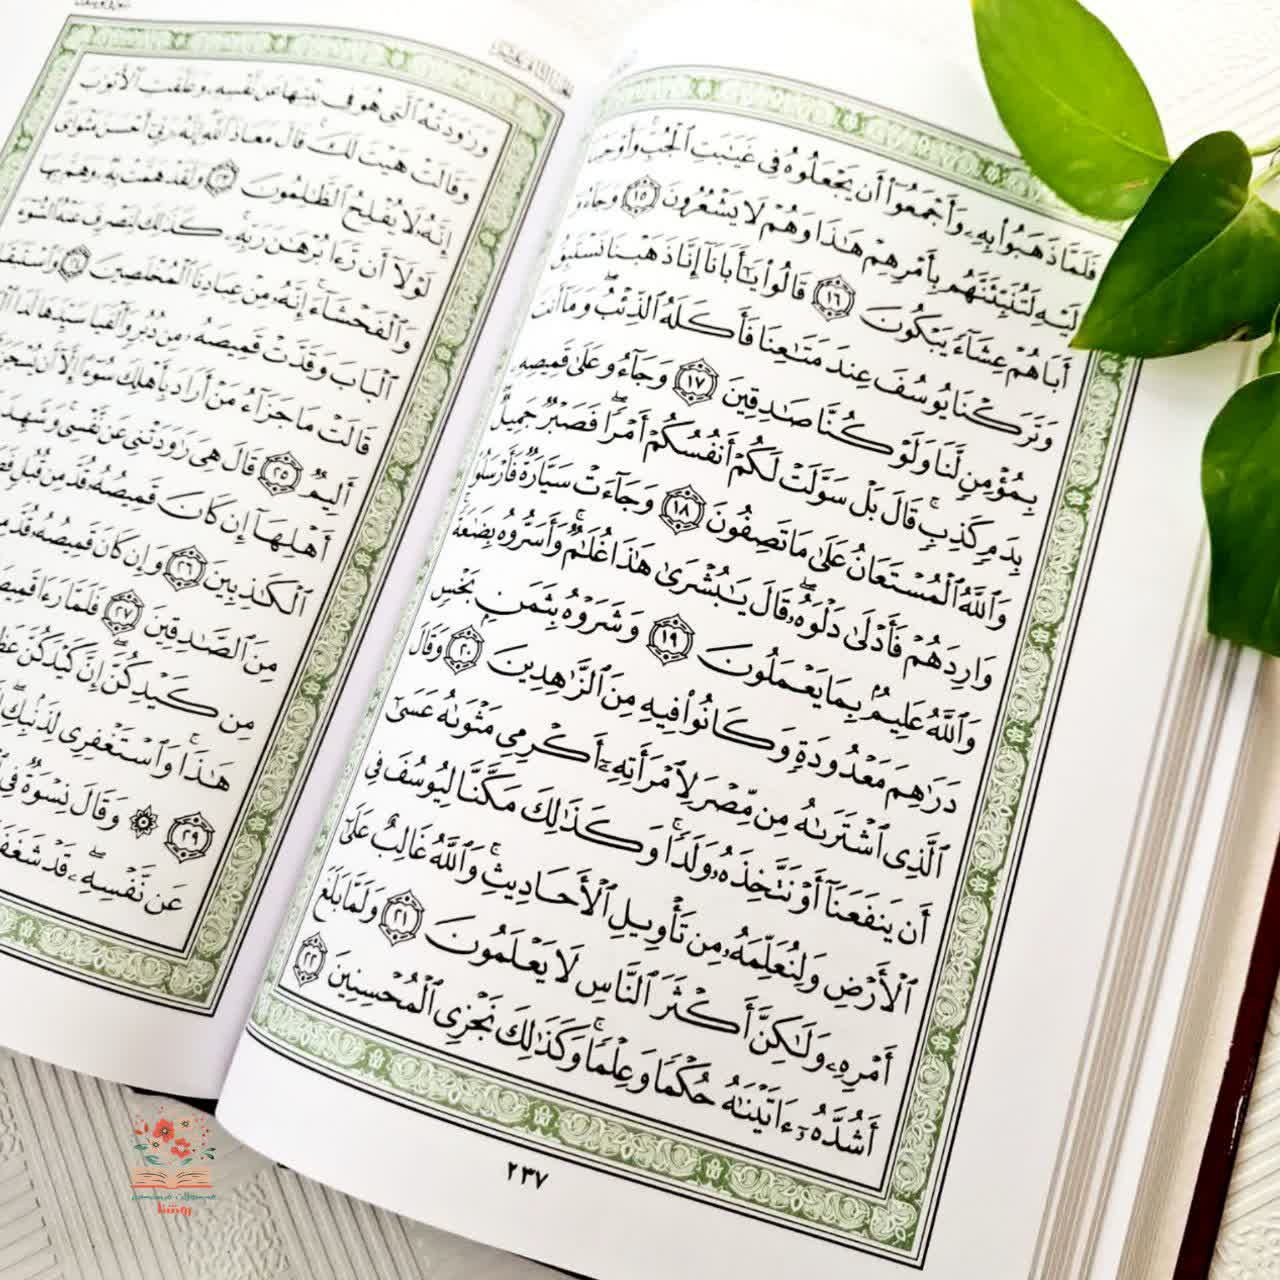 فَلَمَّا ذَهَبُوا۟ بِهِۦ وَأَجْمَعُوٓا۟ أَن يَجْعَلُوهُ فِى غَيَـٰبَتِ ٱلْجُبِّ وَأَوْحَيْنَآ
إِلَيْهِ لَتُنَبِّئَنَّهُم بِأَمْرِهِمْ هَـٰذَا وَهُمْ لَا يَشْعُرُونَ ١٥ وَجَآءُوٓ
أَبَاهُمْ عِشَآءً يَبْكُونَ ١٦ قَالُوا۟ يَـٰٓأَبَانَآ إِنَّا ذَهَبْنَا نَسْتَبِقُ
وَتَرَكْنَا يُوسُفَ عِندَ مَتَـٰعِنَا فَأَكَلَهُ ٱلذِّئْبُ وَمَآ أَنتَ
بِمُؤْمِنٍ لَّنَا وَلَوْ كُنَّا صَـٰدِقِينَ ١٧ وَجَآءُو عَلَىٰ قَمِيصِهِۦ
بِدَمٍ كَذِبٍ قَالَ بَلْ سَوَّلَتْ لَكُمْ أَنفُسُكُمْ أَمْرًا فَصَبْرٌ جَمِيلٌ
وَٱللَّهُ ٱلْمُسْتَعَانُ عَلَىٰ مَا تَصِفُونَ ١٨ وَجَآءَتْ سَيَّارَةٌ فَأَرْسَلُوا۟
وَارِدَهُمْ فَأَدْلَىٰ دَلْوَهُۥ قَالَ يَـٰبُشْرَىٰ هَـٰذَا غُلَـٰمٌ وَأَسَرُّوهُ بِضَـٰعَةً
وَٱللَّهُ عَلِيمٌۢ بِمَا يَعْمَلُونَ ١٩ وَشَرَوْهُ بِثَمَنٍۭ بَخْسٍ
دَرَٰهِمَ مَعْدُودَةٍ وَكَانُوا۟ فِيهِ مِنَ ٱلزَّٰهِدِينَ ٢٠ وَقَالَ
ٱلَّذِى ٱشْتَرَىٰهُ مِن مِّصْرَ لِٱمْرَأَتِهِۦٓ أَكْرِمِى مَثْوَىٰهُ عَسَىٰٓ
أَن يَنفَعَنَآ أَوْ نَتَّخِذَهُۥ وَلَدًا وَكَذَٰلِكَ مَكَّنَّا لِيُوسُفَ فِى
ٱلْأَرْضِ وَلِنُعَلِّمَهُۥ مِن تَأْوِيلِ ٱلْأَحَادِيثِ وَٱللَّهُ غَالِبٌ عَلَىٰٓ
أَمْرِهِۦ وَلَـٰكِنَّ أَكْثَرَ ٱلنَّاسِ لَا يَعْلَمُونَ ٢١ وَلَمَّا بَلَغَ
أَشُدَّهُۥٓ ءَاتَيْنَـٰهُ حُكْمًا وَعِلْمًا وَكَذَٰلِكَ نَجْزِى ٱلْمُحْسِنِينَ ٢٢
٢٣٧
وَرَٰوَدَتْهُ ٱلَّتِى هُوَ فِى بَيْتِهَا عَن نَّفْسِهِۦ وَغَلَّقَتِ ٱلْأَبْوَٰبَ
وَقَالَتْ هَيْتَ لَكَ قَالَ مَعَاذَ ٱللَّهِ إِنَّهُۥ رَبِّىٓ أَحْسَنَ مَثْوَاىَ
إِنَّهُۥ لَا يُفْلِحُ ٱلظَّـٰلِمُونَ ٢٣ وَلَقَدْ هَمَّتْ بِهِۦ وَهَمَّ بِهَا
لَوْلَآ أَن رَّءَا بُرْهَـٰنَ رَبِّهِۦ كَذَٰلِكَ لِنَصْرِفَ عَنْهُ ٱلسُّوٓءَ
وَٱلْفَحْشَآءَ إِنَّهُۥ مِنْ عِبَادِنَا ٱلْمُخْلَصِينَ ٢٤ وَٱسْتَبَقَا
ٱلْبَابَ وَقَدَّتْ قَمِيصَهُۥ مِن دُبُرٍ وَأَلْفَيَا سَيِّدَهَا لَدَا
قَالَتْ مَا جَزَآءُ مَنْ أَرَادَ بِأَهْلِكَ سُوٓءًا إِلَّآ أَن
أَلِيمٌ ٢٥ قَالَ هِىَ رَٰوَدَتْنِى عَن نَّفْسِى وَشَهِدَ
أَهْلِهَآ إِن كَانَ قَمِيصُهُۥ قُدَّ مِن قُبُلٍ
ٱلْكَـٰذِبِينَ ٢٦ وَإِن كَانَ قَمِيصُهُۥ قُدَّ
مِنَ ٱلصَّـٰدِقِينَ ٢٧ فَلَمَّا رَءَا
مِن كَيْدِكُنَّ إِنَّ كَيْدَكُنَّ
هَـٰذَا وَٱسْتَغْفِرِى لِذَنۢبِكِ
٢٩ ۞ وَقَالَ نِسْوَةٌ
عَن نَّفْسِهِۦ قَدْ
محصولات فرهنگی
روشنا